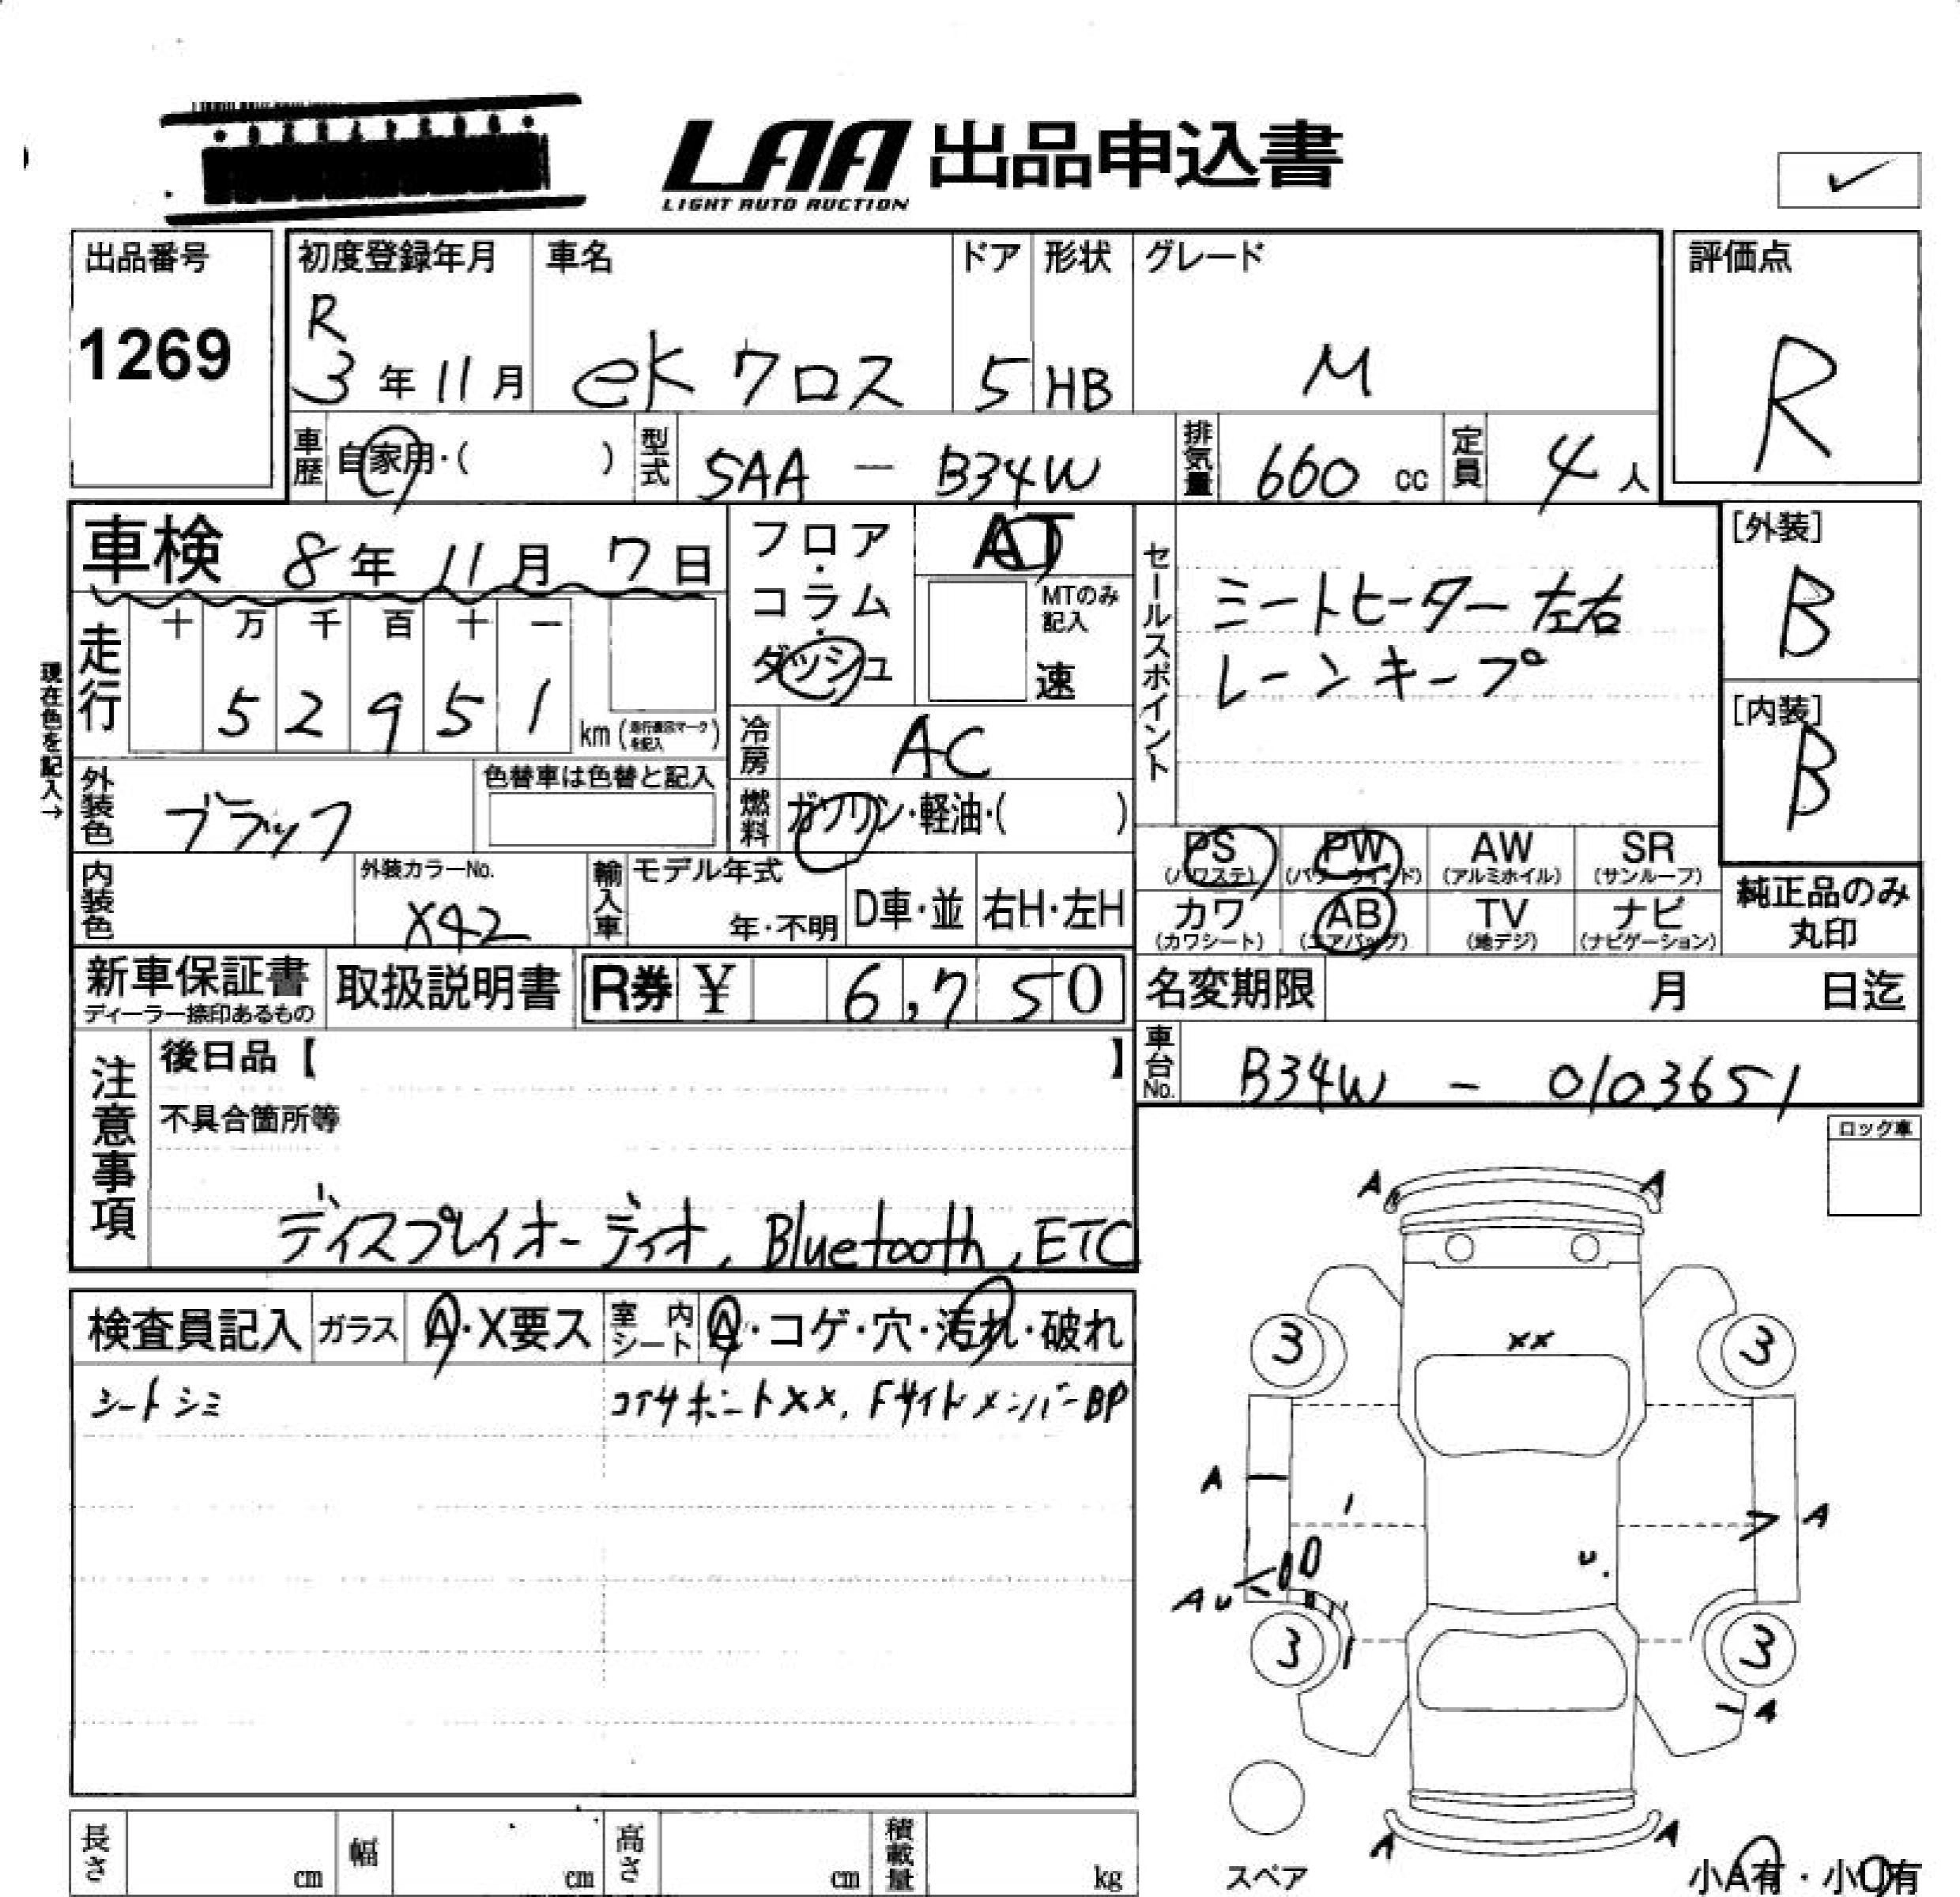 LAA 出品申込書
LIGHT AUTO AUCTION
出品番号
1269
初度登録年月
R
3年11月
車名
eKクロス
ドア
5
形状
HB
グレード
M
評価点
R
車歴
自家用・( )
型式
5AA － B34W
排気量
660 cc
定員
4人
車検 8年11月7日
現在色を記入→
走行
十 万 千 百 十 一
5 2 9 5 1
km
を記入
フロア・コラム・ダッシュ
AT
MTのみ記入
速
冷房
AC
燃料
ガソリン・軽油・( )
セールスポイント
シートヒーター左右
レーンキープ
[外装]
B
[内装]
B
外装色
ブラック
色替車は色替と記入
内装色
外装カラーNo.
X42
輸入車
モデル年式
年・不明
D車・並
右H・左H
PS
(パワステ)
PW
(パワーウインド)
AW
(アルミホイル)
SR
(サンルーフ)
カワ
(カワシート)
AB
(エアバッグ)
TV
(地デジ)
ナビ
(ナビゲーション)
純正品のみ
丸印
新車保証書
ディーラー捺印あるもの
取扱説明書
R券 ¥ 6,750
名変期限 月 日迄
車台No.
B34W - 0103651
注意事項
後日品【 】
不具合箇所等
ディスプレイオーディオ, Bluetooth, ETC
ロック車
検査員記入
ガラス
A・X要ス
室内シート
A・コゲ・穴・汚れ・破れ
シートシミ
コアサポートXX, FサイドメンバーBP
A A
3 3
XX
A
A
U
AU
3 3
A
A A
スペア
小A有・小U有
長さ cm
幅 cm
高さ cm
積載量 kg